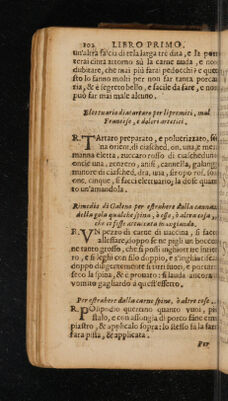 102 LIBRO PRIMO.
un'altra fascia di tela larga tre dita, e la por
terai cinta attorno sù la carne nuda, e non
dubitare, che mai più farai pedocchi e que
sto lo fanno molti per non far tanta porca
ria, & è segreto bello, e facile da fare, e non
può far mai male alcuno.
Elettuario di tartaro per li premiti, mal
Francese, e dolori artetici.
R. TArtaro preparato, e poluerizzato, se
na orient. di ciasched, on. una, e mez
manna eletta, zuccaro rosso di ciasched
oncie una, zenzero, anisi, cannella, galanga
minore di ciasched, dra, una, siropo ros. so
one, cinque, si facci elettuario; la dose quan
to un'amandola.
Rimedio di Galeno per estrahere dalla canna
della gola qualche spina, ò osso, ò altra cosa
che ci fosse attaccata mangiando.
R. UN pezzo di carne di vaccina, si facci
allessare, doppo se ne pigli un boccon
ne tanto grosso, che si possi inghiottire inte
ro, e si leghi con filo doppio, e s'inghiotti
doppo diligentemente si tiri fuori, e portarà
seco la spina, & è prouato: e leua ancora
vomito gagliardo a quest'effetto.
Per estrahere dalla carne spine, ò altre cose.
R. POlipodio quercino quanto vuoi, pi
stalo, e con assongia di porco fane em
piastro, & applicalo sopra: lo stesso fà la
fara pista, & applicata.
Per